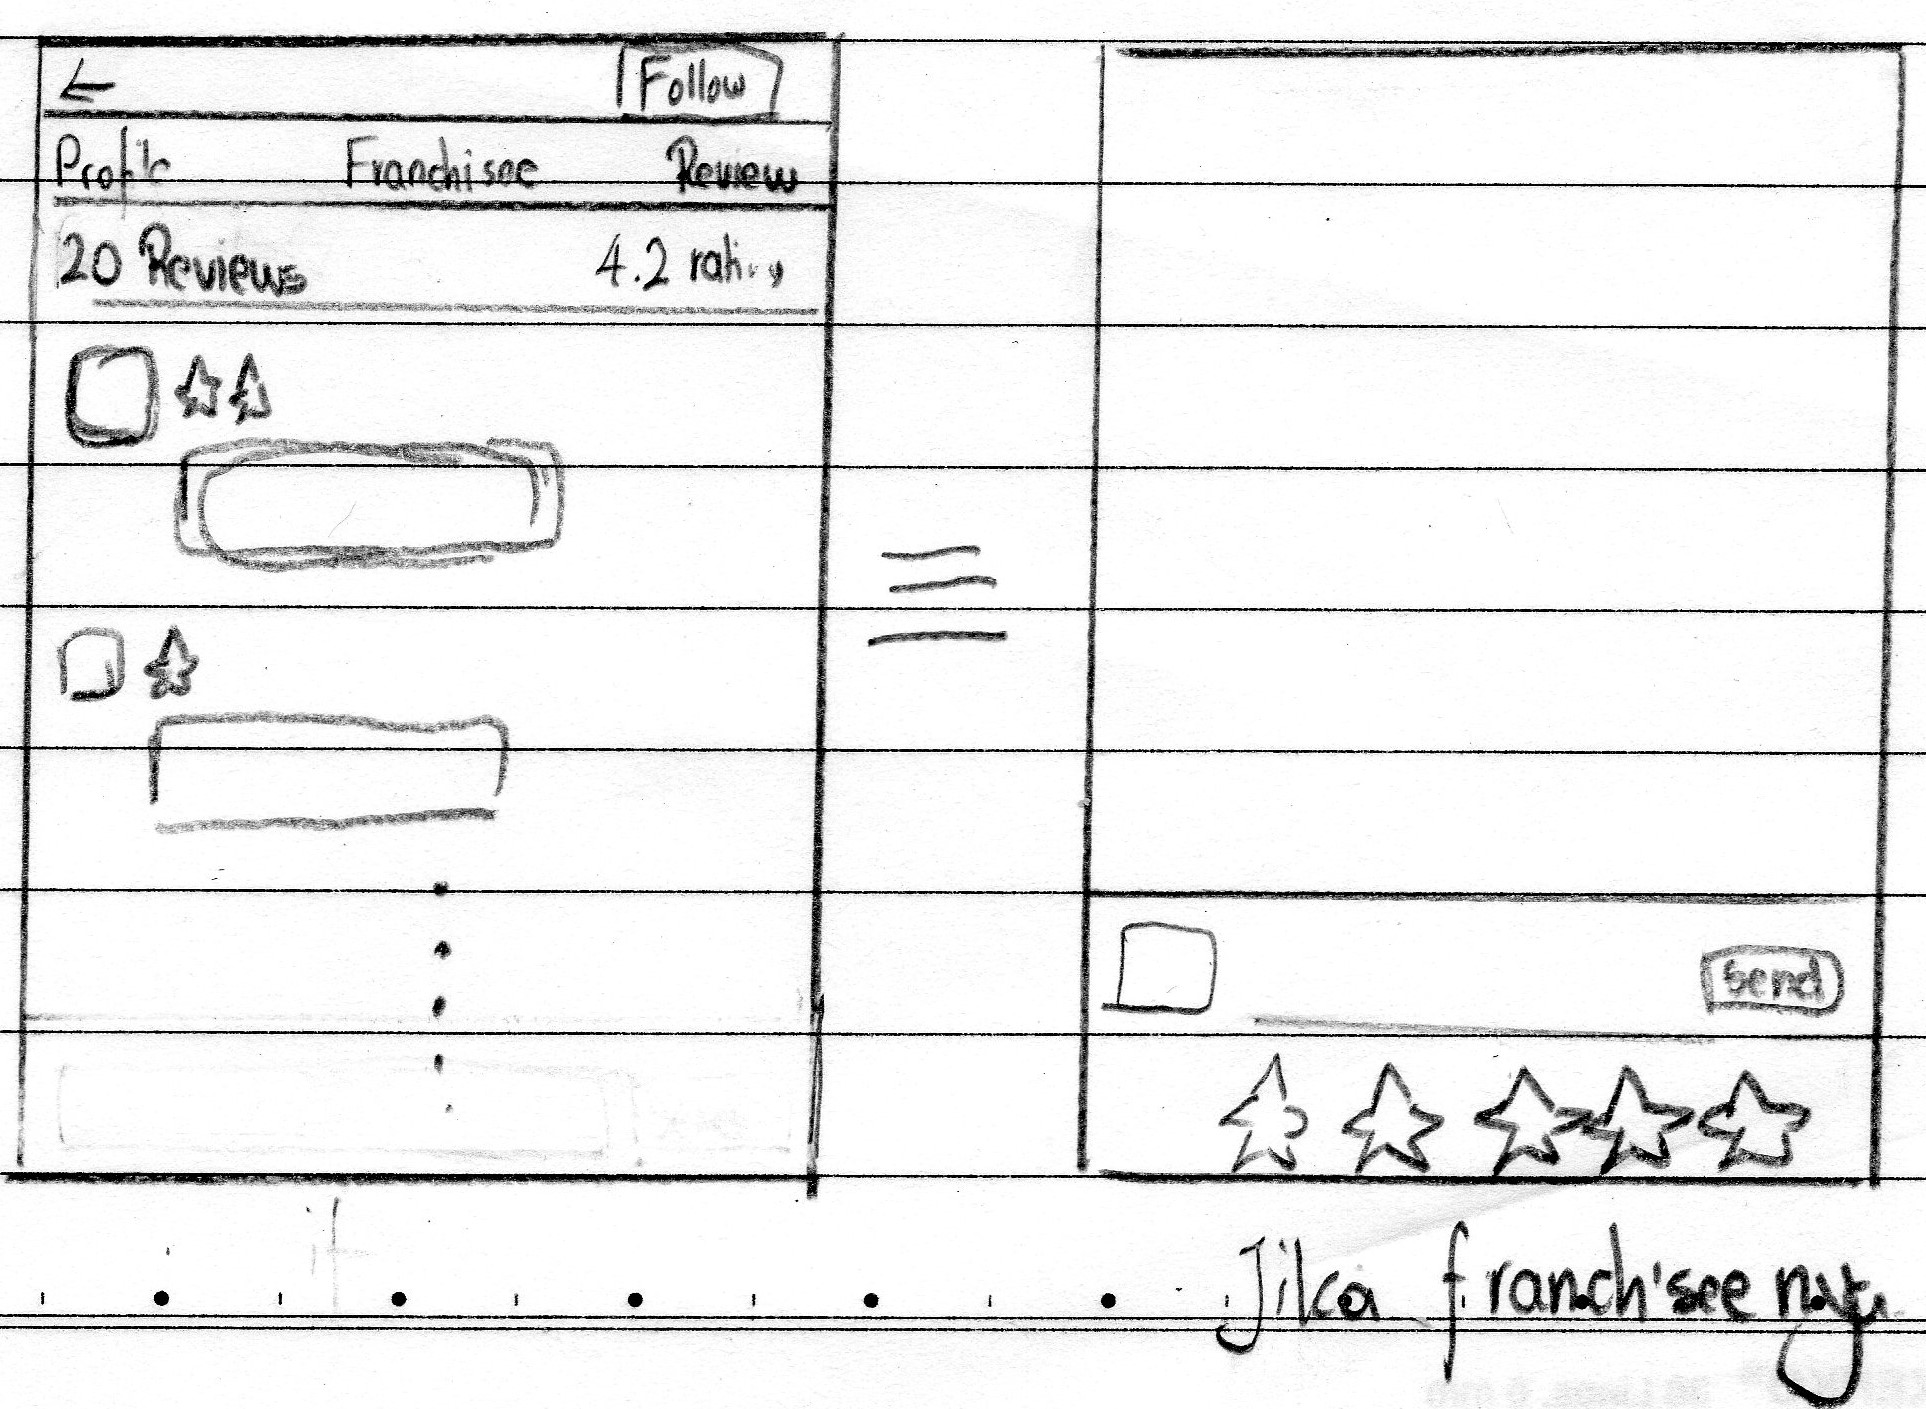 Follow
Profile Franchisee Review
20 Reviews 4.2 rating
Send
Jika franchisee nya